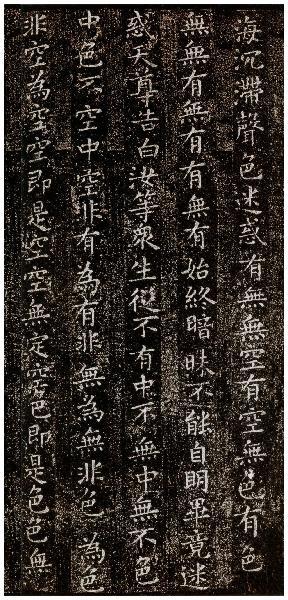 海沉滯聲色迷惑有無無空有空無色有色
無無有無有有無有始終暗昧不能自明畢竟迷
惑天尊告曰汝等衆生從不有中不無中無不色
中色不空中空非有為有非無為無非色為色
非空為空空即是空空無定空色即是色色無